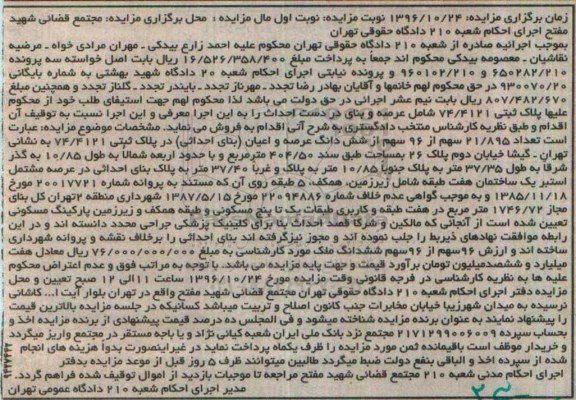 زمان برگزاری مزایده: ۱۳۹۶/۱۰/۲۴ نوبت مزایده: نوبت اول مال مزایده : محل برگزاری مزایده: مجتمع قضائی شهید
مفتح اجرای احکام شعبه ۲۱۰ دادگاه حقوقی تهران
بموجب اجرائیه صادره از شعبه ۲۱۰ دادگاه حقوقی تهران محکوم علیه احمد زارع بیدکی ـ مهران مرادی خواه ـ مرضیه
نقاشیان ـ معصومه بیدکی محکوم اند جمعاً به پرداخت مبلغ ۱۶/۵۲۶/۳۵۸/۴۰۰ ریال بابت اصل خواسته سه پرونده
۶۵۰۲۸۲/۲۱۰ و ۹۶۰۱۰۲/۲۱۰ و پرونده نیابتی اجرای احکام شعبه ۲۰ دادگاه شهید بهشتی به شماره بایگانی
۹۳۰۰۷۰/۲۰ در حق محکوم لهم خانمها و آقایان بهادر رضا تجدد ـ مهرناز تجدد ـ بایندر تجدد ـ گلناز تجدد و همچنین مبلغ
۸۰۷/۴۸۲/۶۷۰ ریال بابت نیم عشر اجرائی در حق دولت می باشد لذا محکوم لهم جهت استیفای طلب خود از محکوم
علیها پلاک ثبتی ۷۴/۴۱۲۱ شامل عرصه و بنای در دست احداث را به این اجرا معرفی و این اجرا نسبت به توقیف آن
اقدام و طبق نظریه کارشناس منتخب دادگستری به شرح آتی اقدام به فروش می نماید. مشخصات موضوع مزایده: عبارت
است تعداد ۲۱/۸۹۵ سهم از ۹۶ سهم از شش دانگ عرصه و اعیان (بنای احداثی) در پلاک ثبتی ۷۴/۴۱۲۱ به نشانی
تهران ـ گیشا خیابان دوم پلاک ۲۶ بمساحت طبق سند ۴۰۴/۵۰ مترمربع و با حدود اربعه شمالا به طول ۱۰/۸۵ به گذر
شرقا به طول ۳۷/۳۵ متر به پلاک جنوبا ۱۰/۸۵ متر به پلاک و غربا ۳۷/۴۰ متر به پلاک بنای احداثی در عرصه مشتمل
استبر یک ساختمان هفت طبقه شامل زیرزمین، همکف، ۵ طبقه روی آن که مستند به پروانه شماره ۲۰۰۱۷۷۲۱ مورخ
۱۳۸۵/۱۱/۱۸ و به موجب گواهی عدم خلاف شماره ۲۲۰۹۴۸۸۶ مورخ ۱۳۸۷/۵/۱۵ شهرداری منطقه ۲تهران کل بنای
مجاز ۱۷۴۶/۷۲ متر مربع در هفت طبقه و کاربری طبقات یک تا پنج مسکونی و طبقه همکف و زیرزمین پارکینگ مسکونی
تعیین شده است از آنجائی که مالکین و شرکا قصد احداث بنا برای کلینیک پزشکی جراحی محدد دانسته اند و در این
راه موافقت نهادهای ذیربط را جلب نموده اند و مجوز نیزگرفته اند بنای احداثی را برخلاف نقشه و پروانه شهرداری
ساخته اند و ارزش ۹۶سهم از ۹۶سهم ششدانگ ملک مورد کارشناسی به مبلغ ۷۶/۰۰۰/۰۰۰/۰۰۰ ریال معادل هفت
میلیارد و ششصدمیلیون تومان برآورد قیمت و جهت پایه مزایده می باشد. با توجه به مراتب فوق و عدم اعتراض محکوم
علیه ها به نظریه کارشناسی در فرجه قانونی وقت مزایده مورخ ۱۳۹۶/۱۰/۲۴ ساعت ۱۱الی ۱۲ صبح تعیین و محل
مزایده دفتر اجرای احکام شعبه ۲۱۰ دادگاه حقوقی تهران مجتمع قضائی شهید مفتح واقع در تهران بلوار آیت ا... کاشانی
نرسیده به میدان شهرزیبا خیابان مخابرات جنب کانون اصلاح و تربیت میباشد کسانیکه در جلسه مزایده بالاترین قیمت
را پیشنهاد نمایند به عنوان برنده مزایده شناخته میشود و فی المجلس ده درصد قیمت پیشنهادی از برنده مزایده اخذ و
بحساب سپرده ۲۱۷۱۲۹۹۰۰۶۰۰۹ مجتمع نزد بانک ملی ایران شعبه کیانی نژاد و یا باجه مستقر در مجتمع واریز میگردد
و خریدار موظف است باقیمانده ثمن مورد مزایده را ظرف یکماه پرداخت نماید در غیراینصورت بدوا هزینه های انجام
شده از سپرده اخذ و الباقی بنفع دولت ضبط میگردد طالبین میتوانند ظرف ۵ روز قبل از موعد مزایده بدفتر
اجرای احکام مدنی شعبه ۲۱۰ مجتمع قضائی شهید مفتح مراجعه تا موجبات بازدید از اموال توقیف شده فراهم گردد.
مدیر اجرای احکام شعبه ۲۱۰ دادگاه عمومی تهران